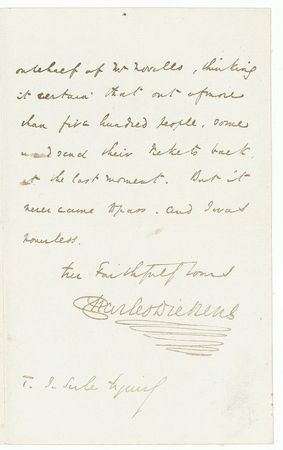 on behalf of Mr Novello, thinking
it certain that out of more
than five hundred people, some
would send their tickets back
at the last moment. But it
never came to pass. and I was
powerless.
Faithfully Yours
Charles Dickens
T. J. Serle Esquire